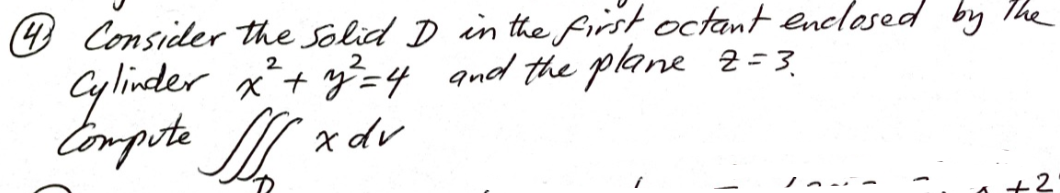 ④ Consider the solid D in the first octant enclosed by the
Cylinder x²+y²=4 and the plane z=3.
Compute ∭_D x dv
+2